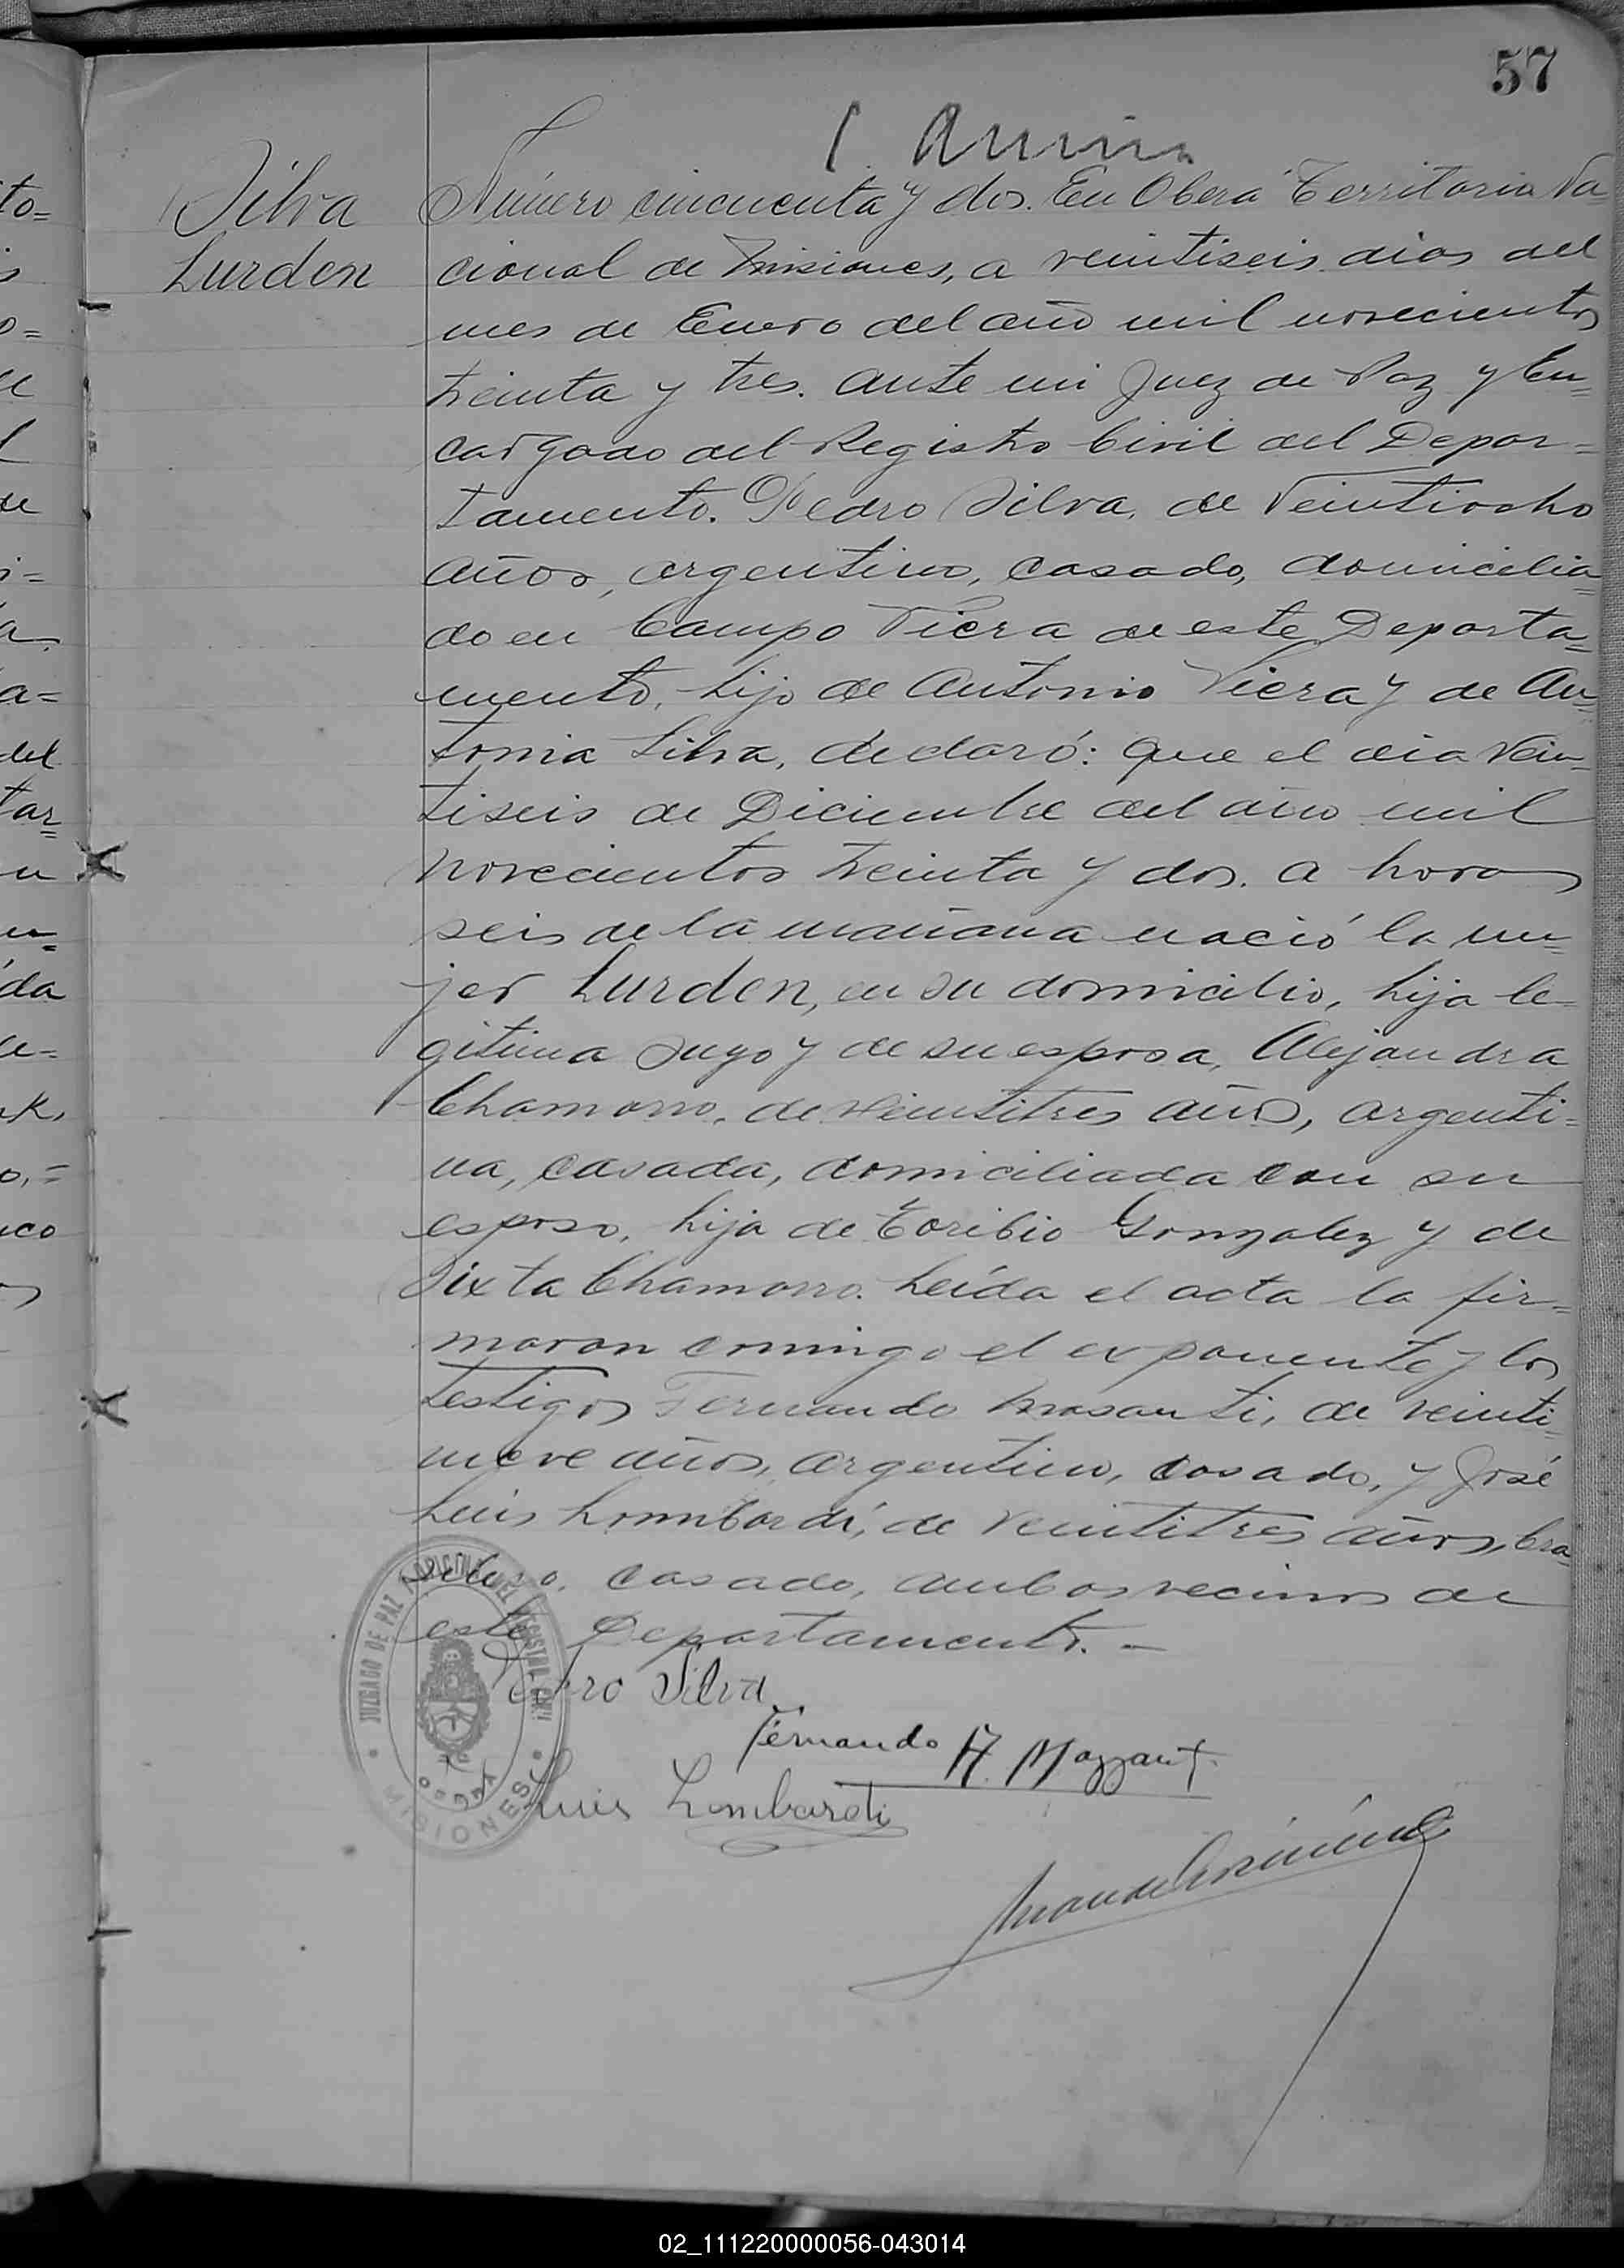 57
Silva
Lurden
Número cincuenta y dos. En Oberá Territorio Na=
cional de Misiones, a veintiseis dias del
mes de Enero del año mil novecientos
treinta y tres. ante mi Juez de Paz y En=
cargado del Registro Civil del Depar=
tamento. Pedro Silva, de veintiocho
años, argentino, casado, domicilia=
do en Campo Viera de este Departa=
mento, hijo de Antonio Viera y de An=
tonia Silva, declaró: que el dia vein=
tiseis de Diciembre del año mil
novecientos treinta y dos. a horas
seis de la mañana nació la mu=
jer Lurden, en su domicilio, hija le=
gitima suya y de su esposa, Alejandra
Chamorro, de veintitres años, argenti=
na, casada, domiciliada con su
esposo, hija de Toribio Gonzalez y de
Sixta Chamorro. Leída el acta la fir=
maron conmigo el exponente y los
testigos Fernando Masanti, de veinti=
nueve años, argentino, casado, y José
Luis Lombardi, de veintitres años, bra=
silero, casado, ambos vecinos de
este Departamento. —
Pedro Silva
Fernando A. Mazzanti
Luis Lombardi
JUZGADO DE PAZ Y OFICINA DEL REGISTRO CIVIL
MISIONES
02_111220000056-043014